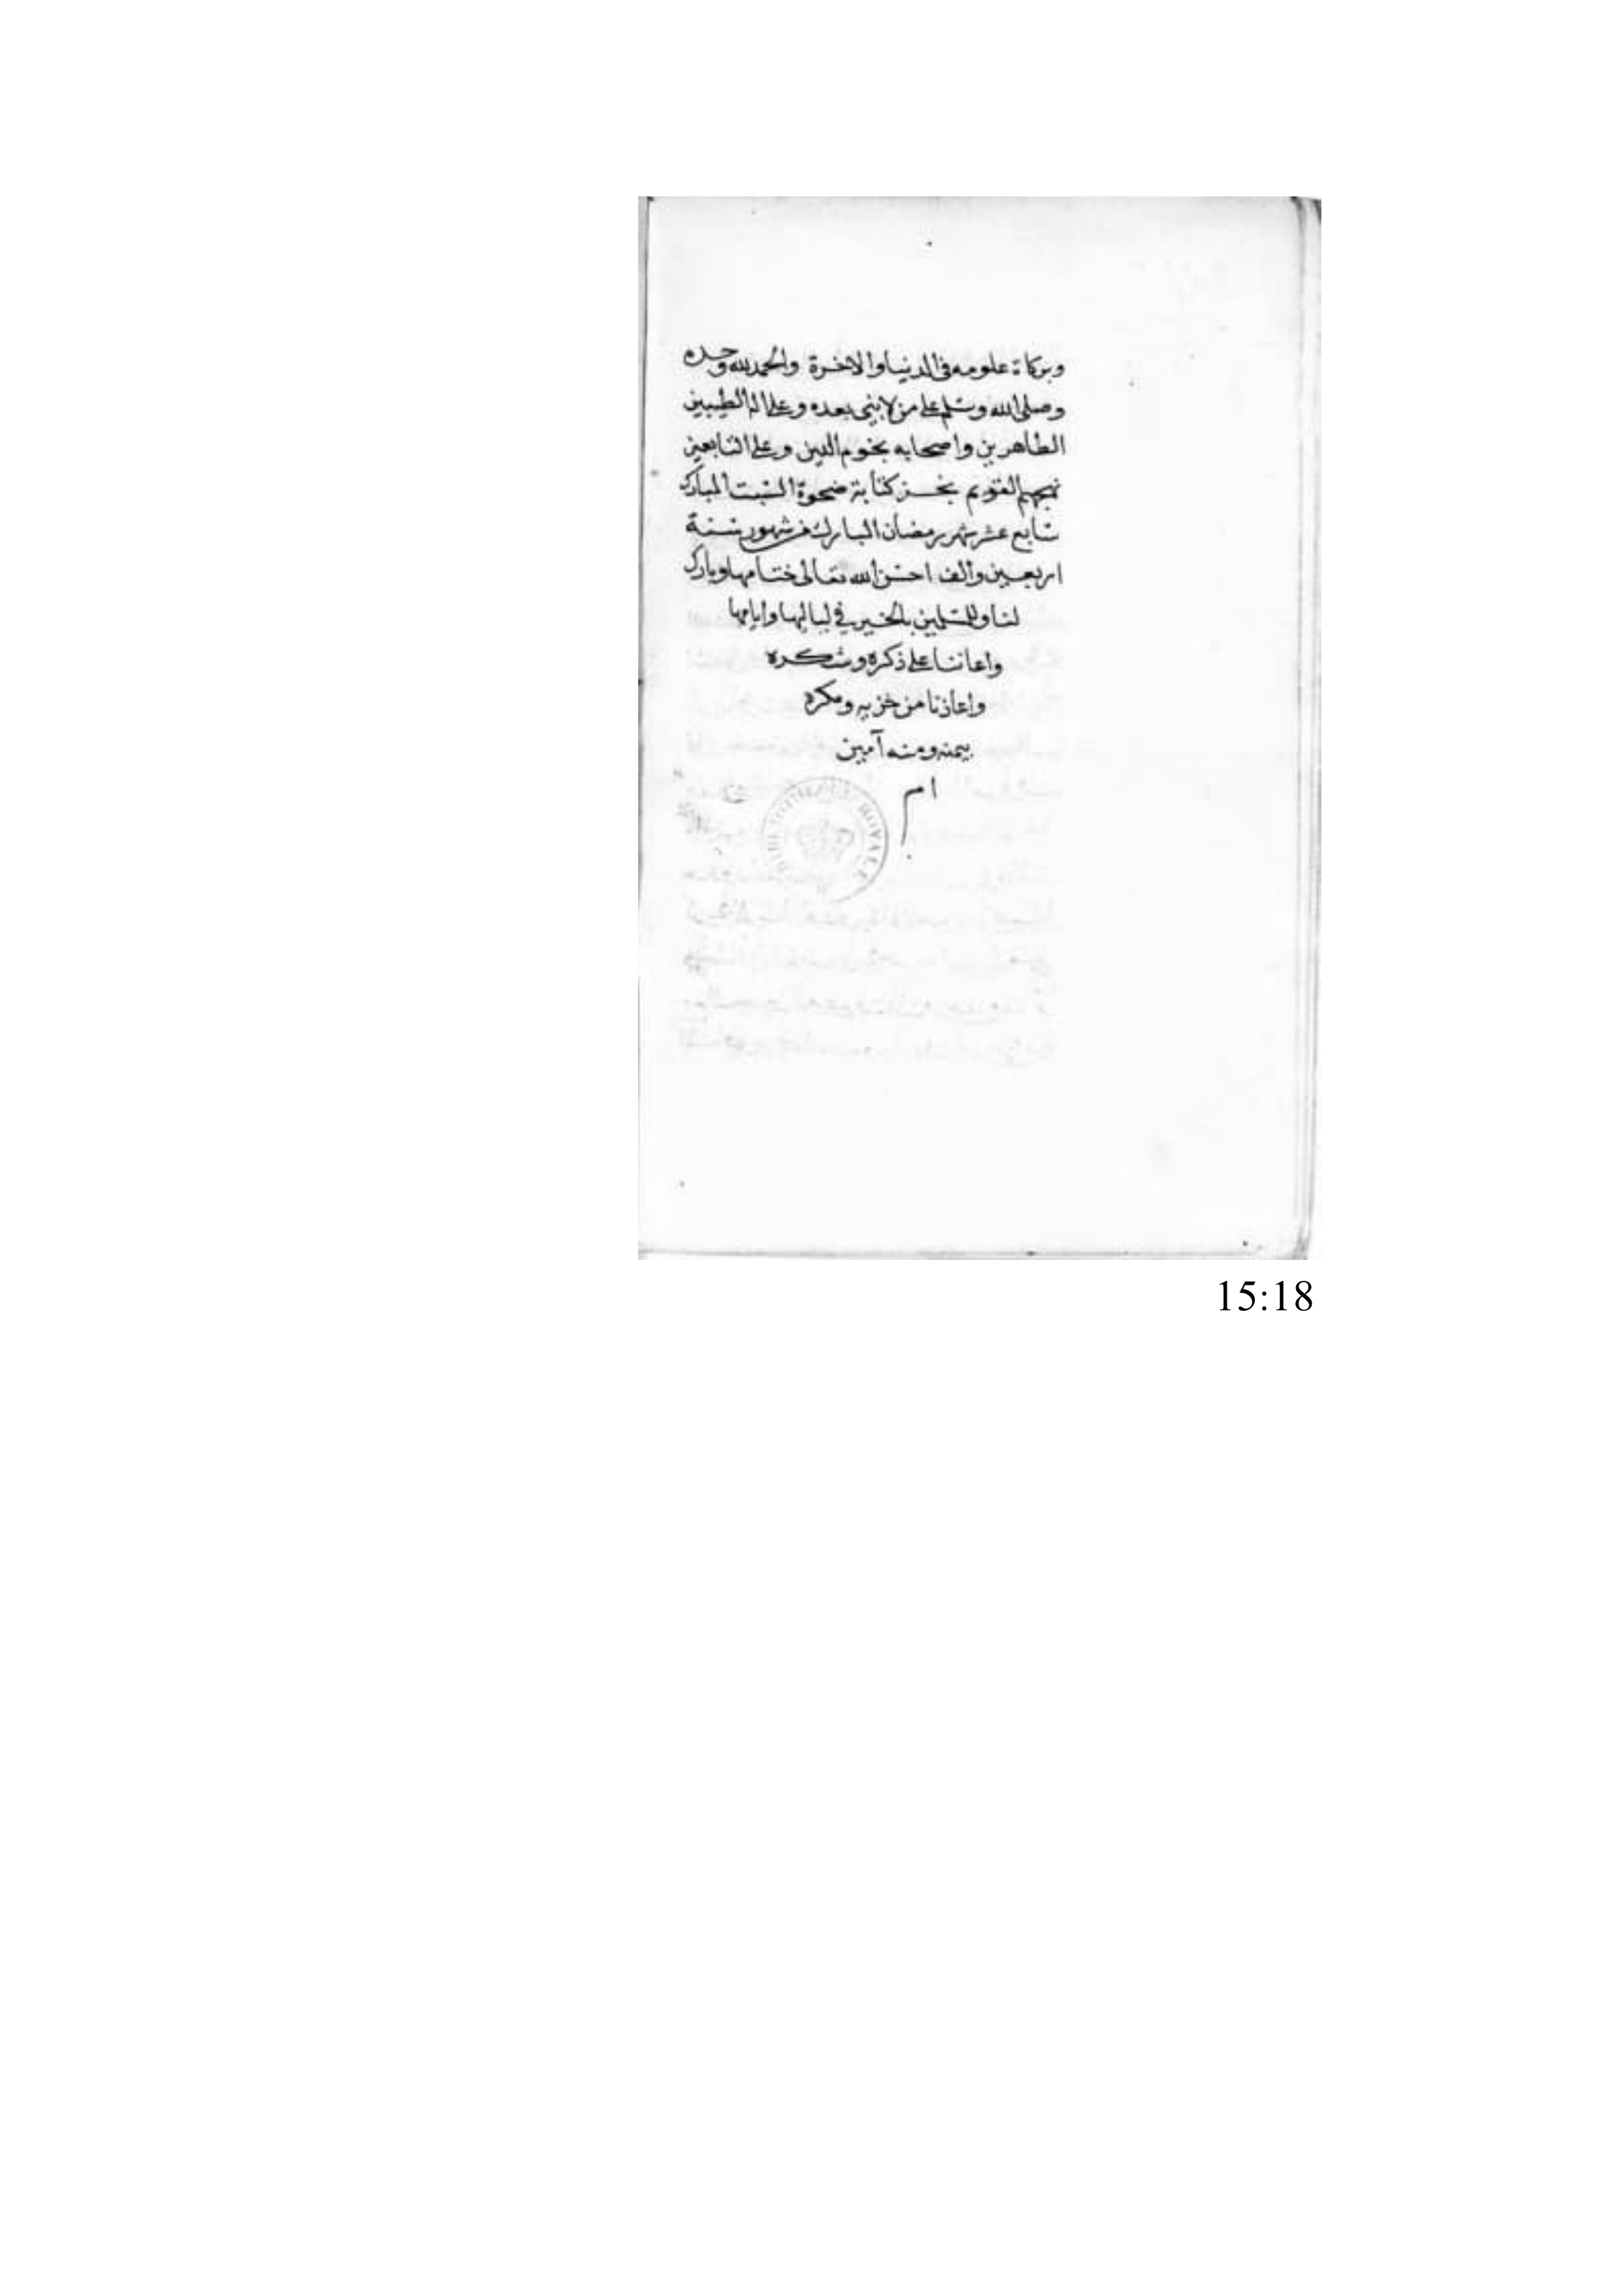 وبركاة علومه في الدنيا والاخرة والحمد لله وحده
وصلى الله وسلم على من لا نبي بعده وعلى اله الطيبين
الطاهرين واصحابه نجوم الدين وعلى التابعين
نهجهم القويم نجز كتابة ضحوة السبت المبارك
سابع عشر شهر رمضان المبارك من شهور سنة
اربعين والف احسن الله تعالى ختامها وبارك
لنا وللمسلمين بالخير في لياليها وايامها
واعاننا على ذكره وشكره
واعاذنا من خزيه ومكره
بيمنه ومنه آمين
ام
BIBLIOTHECAE ROYALE
15:18